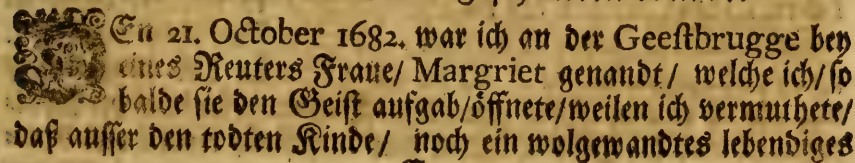 DEn 21. October 1682. war ich an der Geestbrugge bey
eines Reuters Fraue/ Margriet genandt/ welche ich/ so
balde sie den Geist aufgab/ öffnete/ weilen ich vermuthete/
daß ausser den todten Kinde/ noch ein wolgewandtes lebendiges